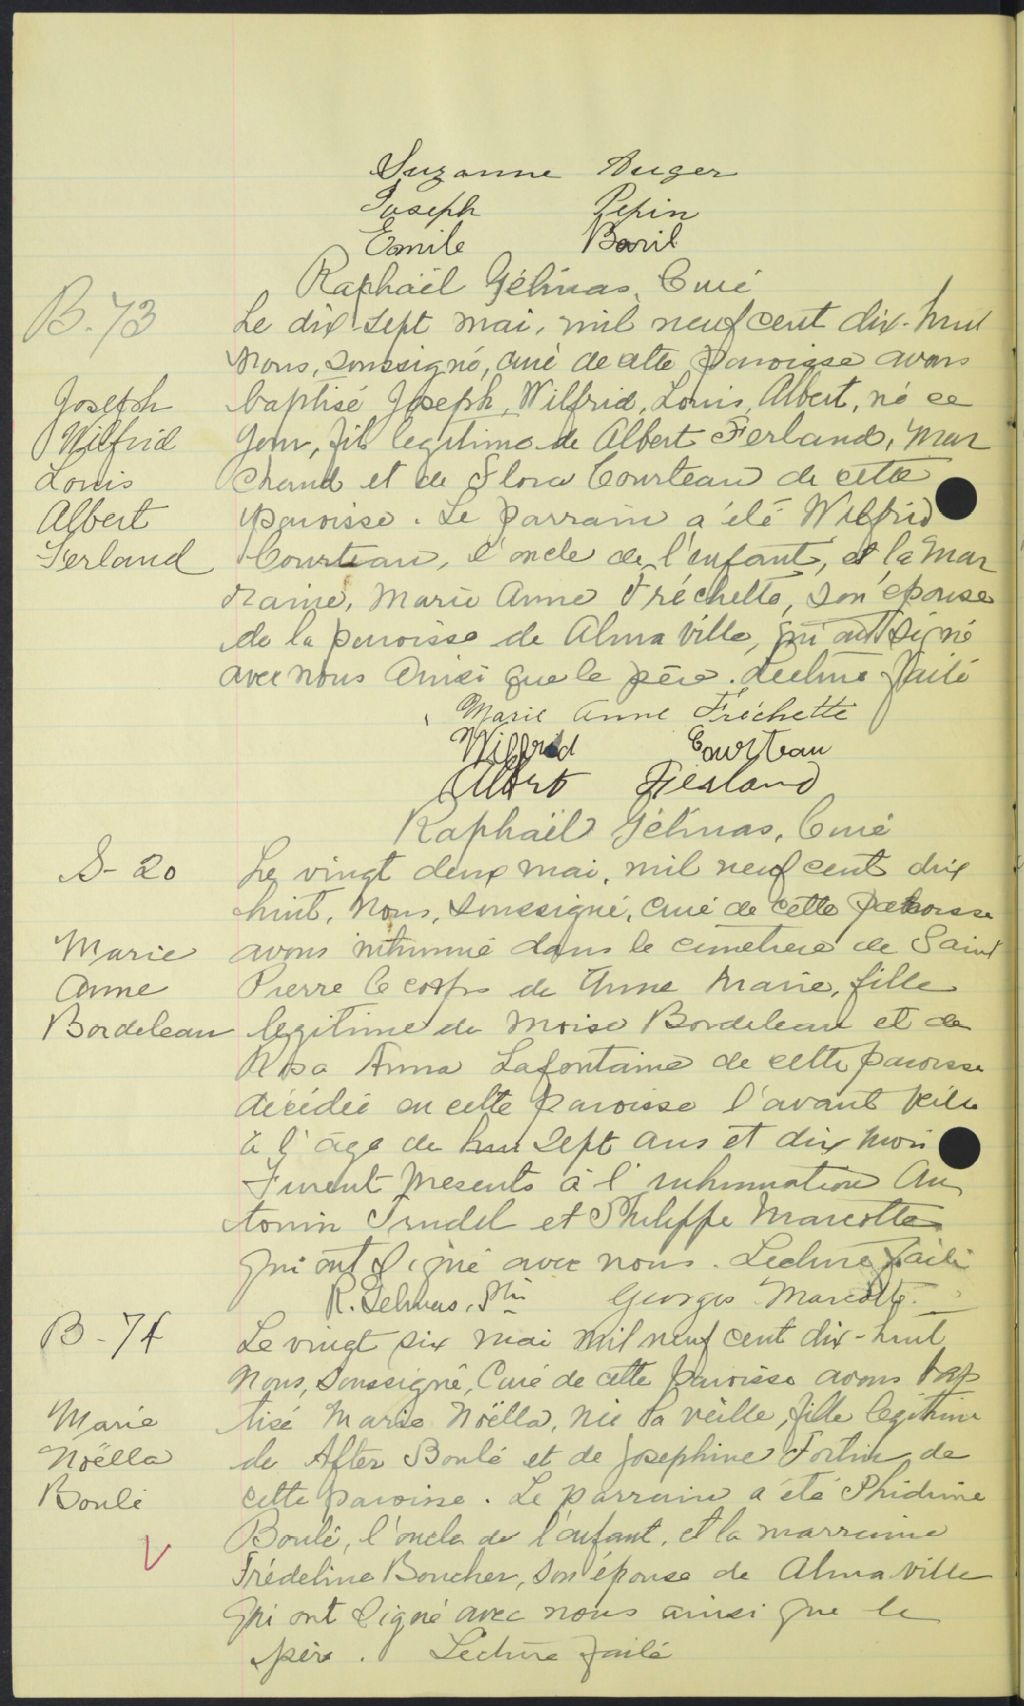 Suzanne Auger
Joseph Pepin
Emile Baril
Raphaël Gélinas, Curé
B-73
Le dix-sept mai, mil neuf cent dix-huit
Nous, soussigné, curé de cette paroisse avons
Joseph
baptisé Joseph, Wilfrid, Louis, Albert, né ce
Wilfrid
jour, fils legitime de Albert Ferland, mar
Louis
chand et de Flora Courteau de cette
Albert
paroisse. Le parrain a été Wilfrid
Ferland
Courteau, l'oncle de l'enfant, et la mar
raine, Marie Anne Fréchette, son épouse
de la paroisse de Alma ville, qui ont signé
avec nous ainsi que le père. Lecture faite
Marie Anne Fréchette
Wilfrid Courteau
Albert Ferland
Raphaël Gélinas, Curé
S-20
Le vingt deux mai, mil neuf cent dix
huit, Nous, soussigné, curé de cette paroisse
Marie
avons inhumé dans le cimetière de Saint
Anne
Pierre le corps de Anne Marie, fille
Bordeleau
legitime de Moise Bordeleau et de
Rosa Anna Lafontaine de cette paroisse
décédée en cette paroisse l'avant veille
à l'âge de sept ans et dix mois
Furent presents à l'inhumation An
tonin Trudel et Philippe Marcotte
qui ont signé avec nous. Lecture faite
R. Gélinas, Ptre Georges Marcotte.
B-74
Le vingt six mai mil neuf cent dix-huit
Nous, soussigné, Curé de cette paroisse avons bap
Marie
tisé Marie Noëlla, née la veille, fille legitime
Noëlla
de After Boulé et de Josephine Fortin de
Boulé
cette paroisse. Le parrain a été Phidime
Boulé, l'oncle de l'enfant, et la marraine
Frédeline Boucher, son épouse de Alma ville
qui ont signé avec nous ainsi que le
père. Lecture faite